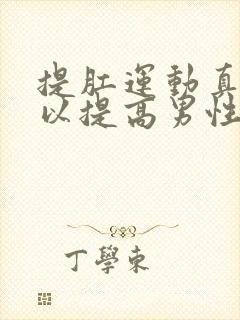 提肛運動真
以提高男性
丁學東